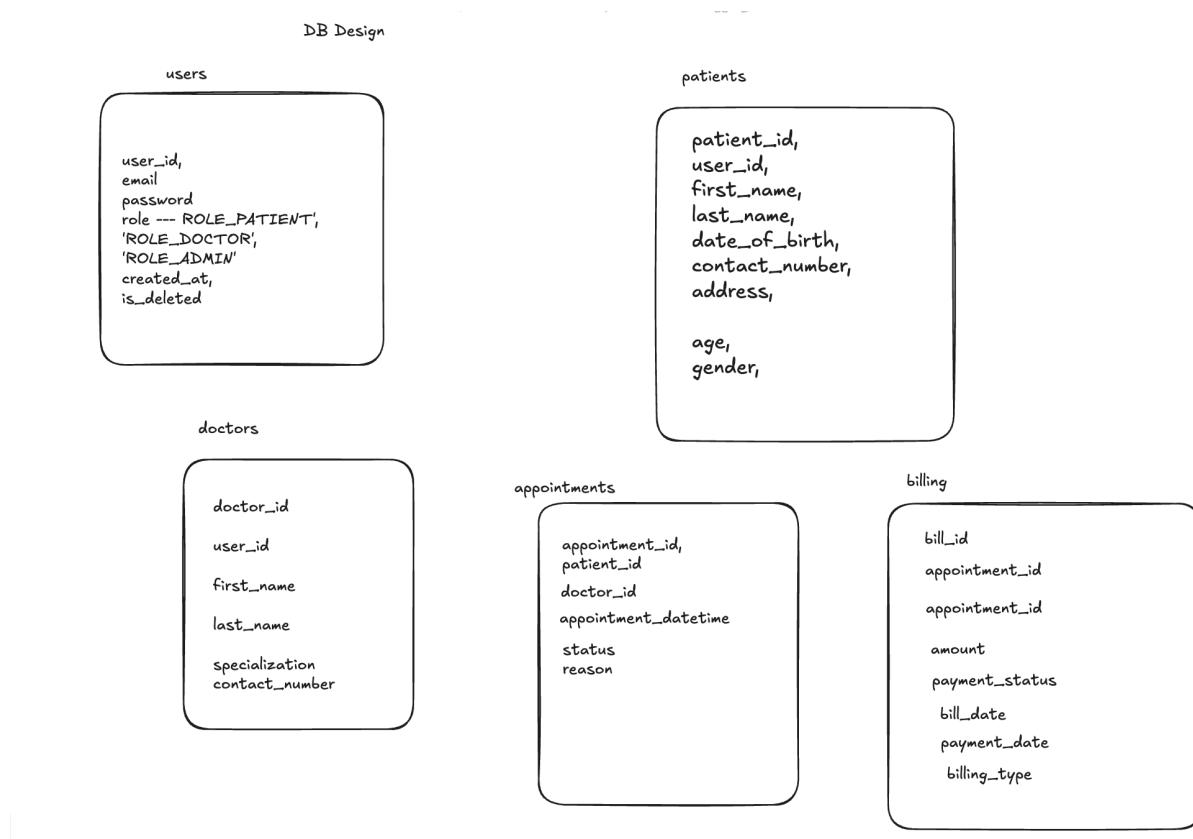 DB Design
users
user_id,
email
password
role --- ROLE_PATIENT',
'ROLE_DOCTOR',
'ROLE_ADMIN'
created_at,
is_deleted
patients
patient_id,
user_id,
first_name,
last_name,
date_of_birth,
contact_number,
address,
age,
gender,
doctors
doctor_id
user_id
first_name
last_name
specialization
contact_number
appointments
appointment_id,
patient_id
doctor_id
appointment_datetime
status
reason
billing
bill_id
appointment_id
appointment_id
amount
payment_status
bill_date
payment_date
billing_type